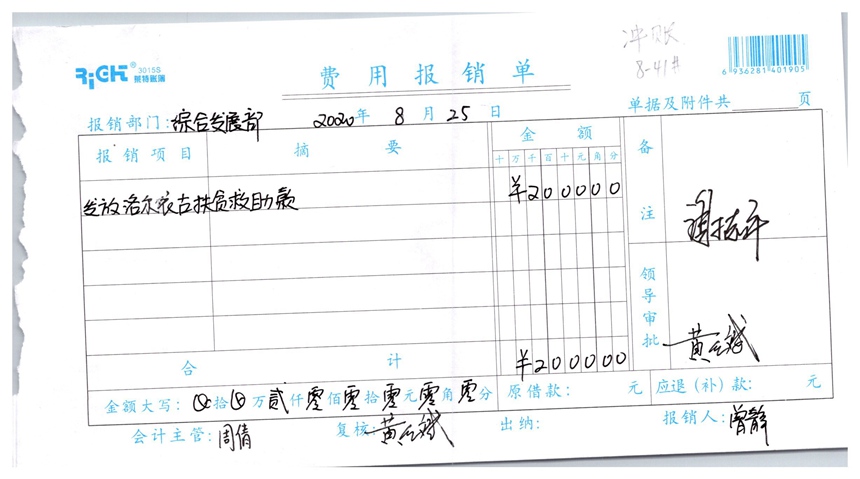 冲账
8-41#
RiCHT® 3015S
莱特账簿
6 936281 401905
费用报销单
报销部门：综合发展部 2020年 8月25日 单据及附件共 页
报销项目 摘要 金额 备注
十万千百十元角分
发放洛尔依吉扶贫救助款 ¥200000
领导审批
合计 ¥200000
金额大写： 拾 万贰仟零佰零拾零元零角零分 原借款： 元 应退（补）款： 元
会计主管：周倩 复核： 出纳： 报销人：曾静